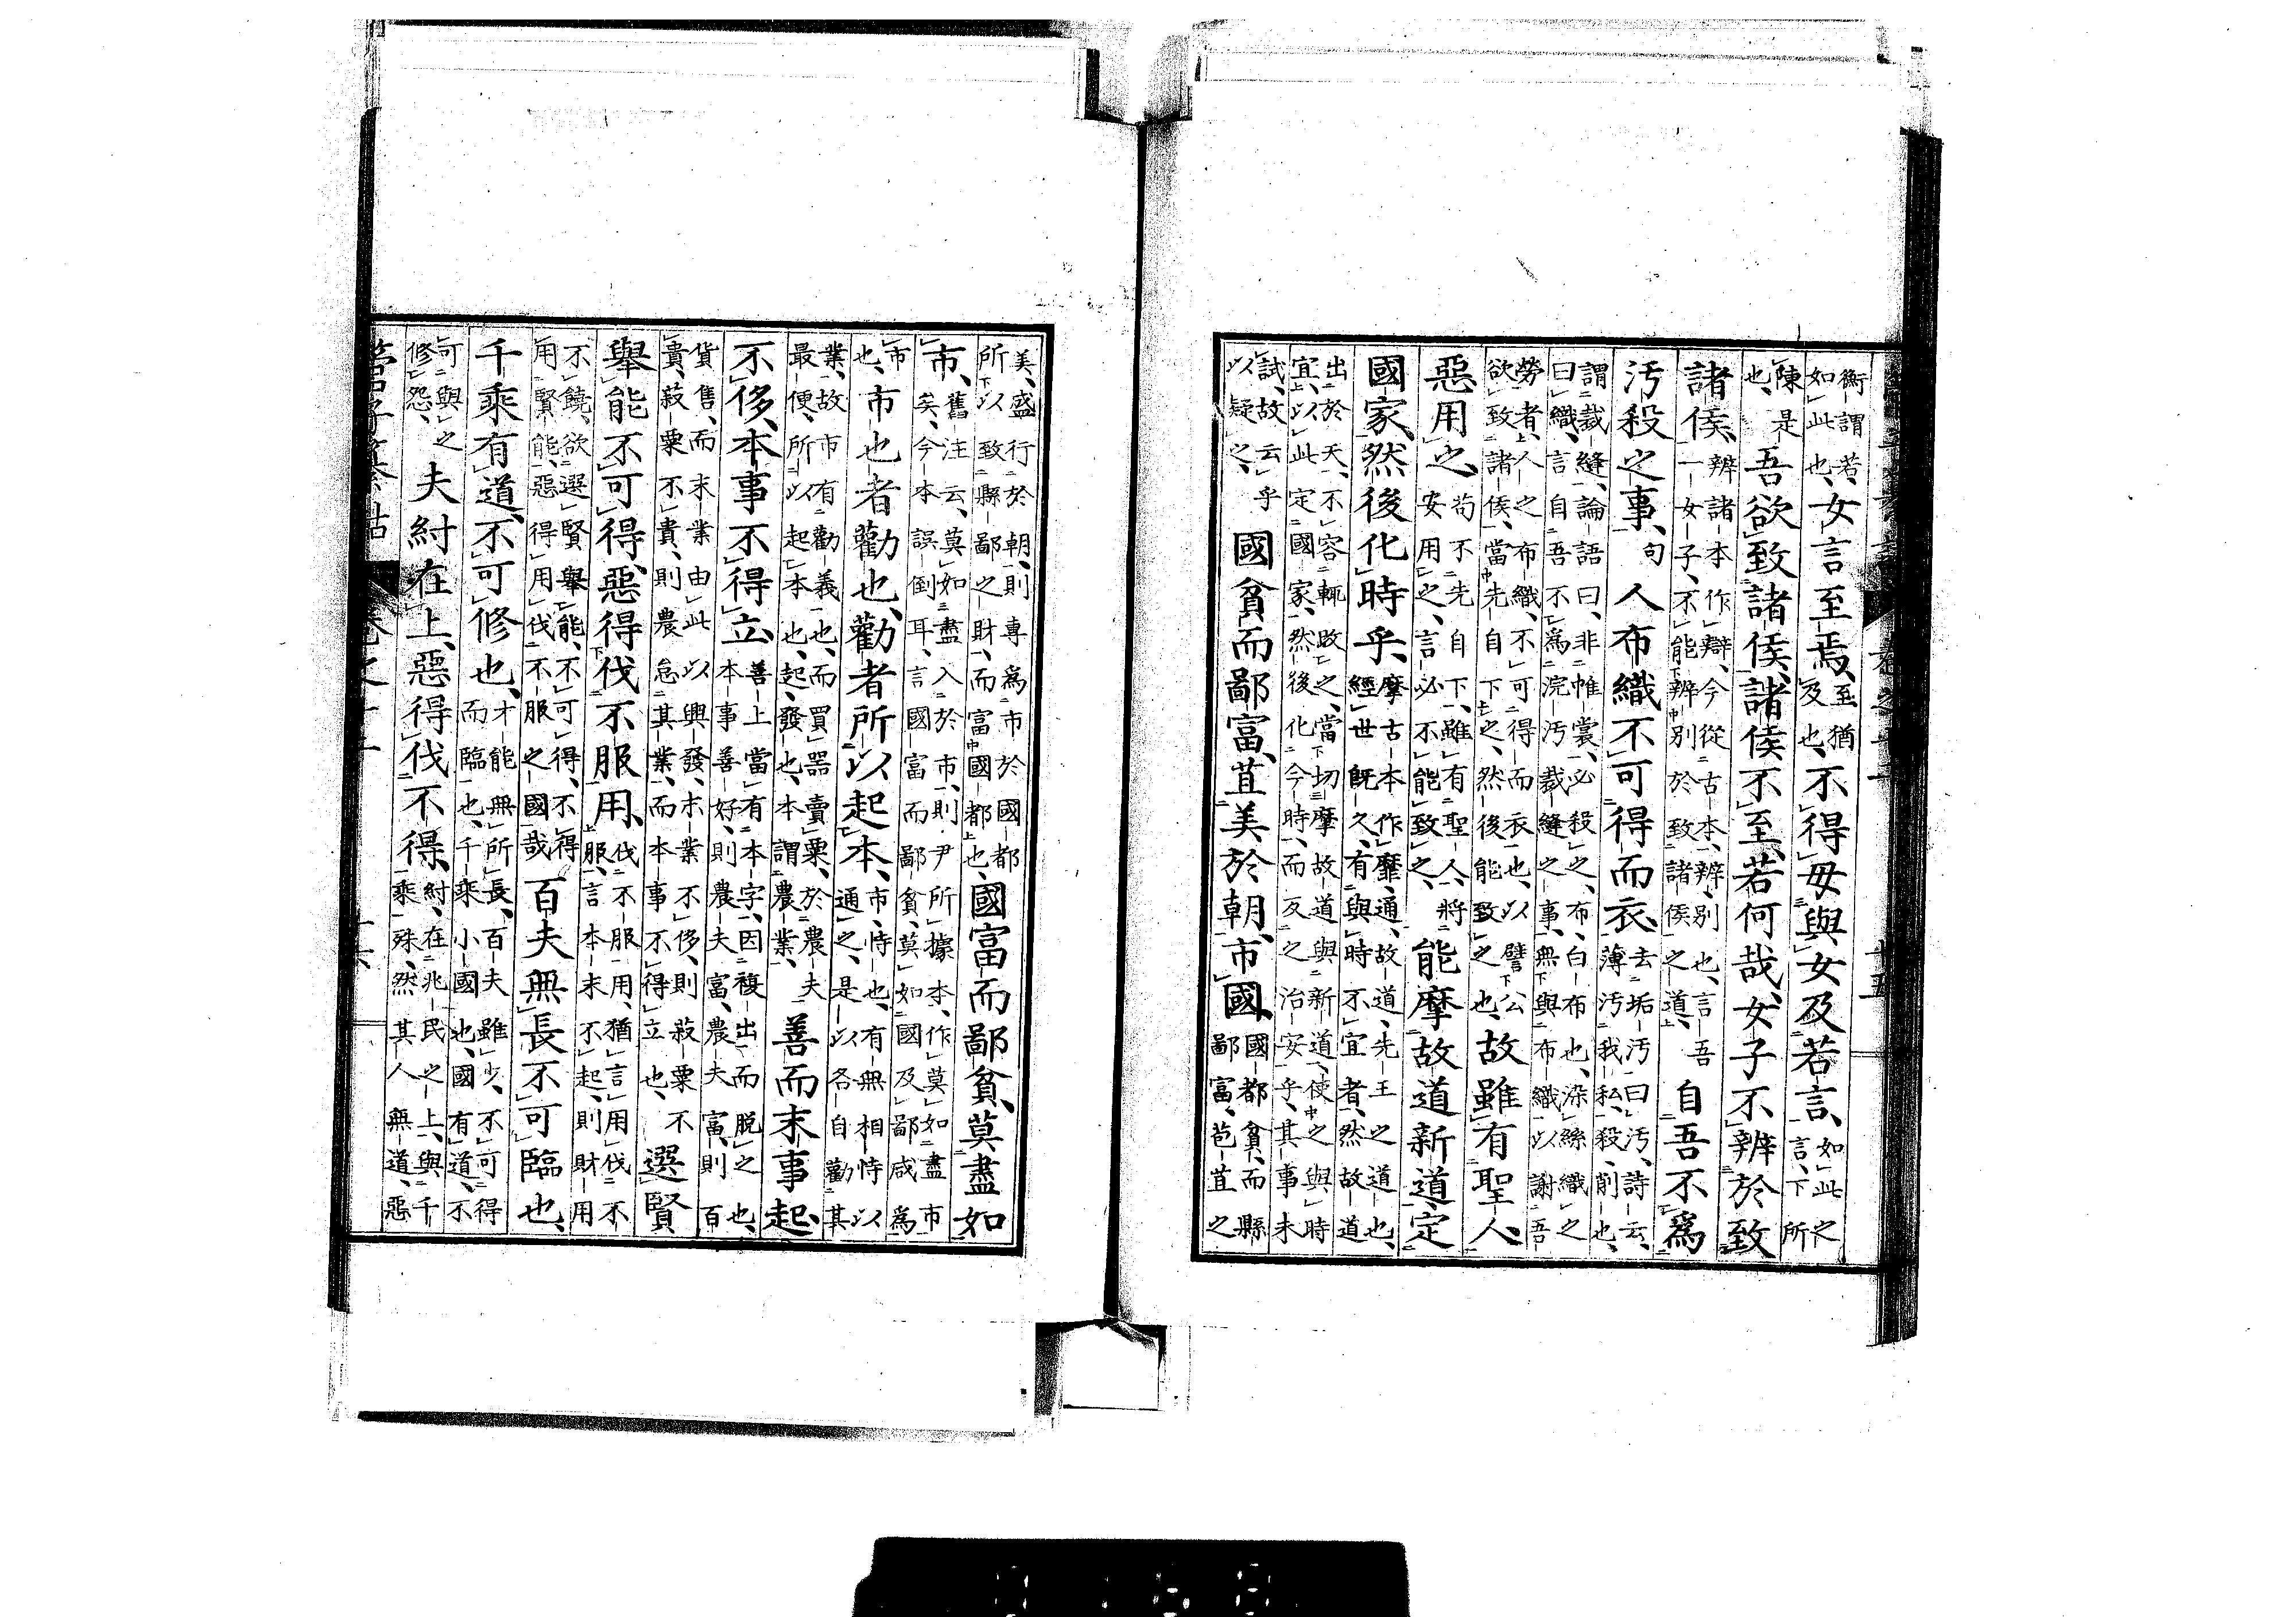 衡謂若
如此也
女言至焉
至猶
及也
不得毋與女及若言
如此之
一言下所
陳是
也
吾欲致諸侯諸侯不至若何哉女子不辨於致
諸侯
辨諸本作辯今從古本辨別也言吾
一女子不能辨別於致諸侯之道
自吾不爲
汚殺之事
句
人布織不可得而衣
去垢汚曰汚詩云
薄汚我私殺削也
謂裁縫論語曰非帷裳必殺之布白布也染絲織之
曰織言自吾不爲浣汚裁縫之事無與布織以謝吾
勞者人之布織不可得而衣也以譬公
欲致諸侯當先自下之然後能致之也
故雖有聖人
惡用之
苟不先自下雖有聖人將
安用之言必不能致之
能摩故道新道定
國家然後化時乎
摩古本作靡通故道先王之道也
經世旣久有與時不宜者然故道
出於天不容輒改之當切摩故道與新道使之與時
宜以此定國家然後化今時而反之治安乎其事未
試故云乎
以疑之
國貧而鄙富苴美於朝市國
國都貧而縣
鄙富苞苴之
美盛行於朝則專爲市於國都
所以致縣鄙之財而富國都也
國富而鄙貧莫盡如
市
舊注云莫如盡入於市則尹所據本作莫如盡市
矣今本誤倒耳言國富而鄙貧莫如國及鄙咸爲
市
也
市也者勸也勸者所以起本
市恃也有無相恃以
通之是以各自勸其
業故市有勸義也而買器賣粟於農夫
最便所以起本也起發也本謂農業
善而末事起
不侈本事不得立
善上當有本字因複出而脫之也
本事善好則農夫富農夫富則百
貨售而末業由此以興發末業不侈則菽粟不
貴菽粟不貴則農怠其業而本事不得立也
選賢
舉能不可得惡得伐不服用
伐不服用猶言用伐不
服言本末不起則財用
不饒欲選賢舉能不可得不得
用賢能惡得用伐不服之國哉
百夫無長不可臨也
千乘有道不可修也
才能無所長百夫雖少不可得
而臨也千乘小國也國有道不
可與之
修怨
夫紂在上惡得伐不得
紂在兆民之上與千
乘殊然其人無道惡